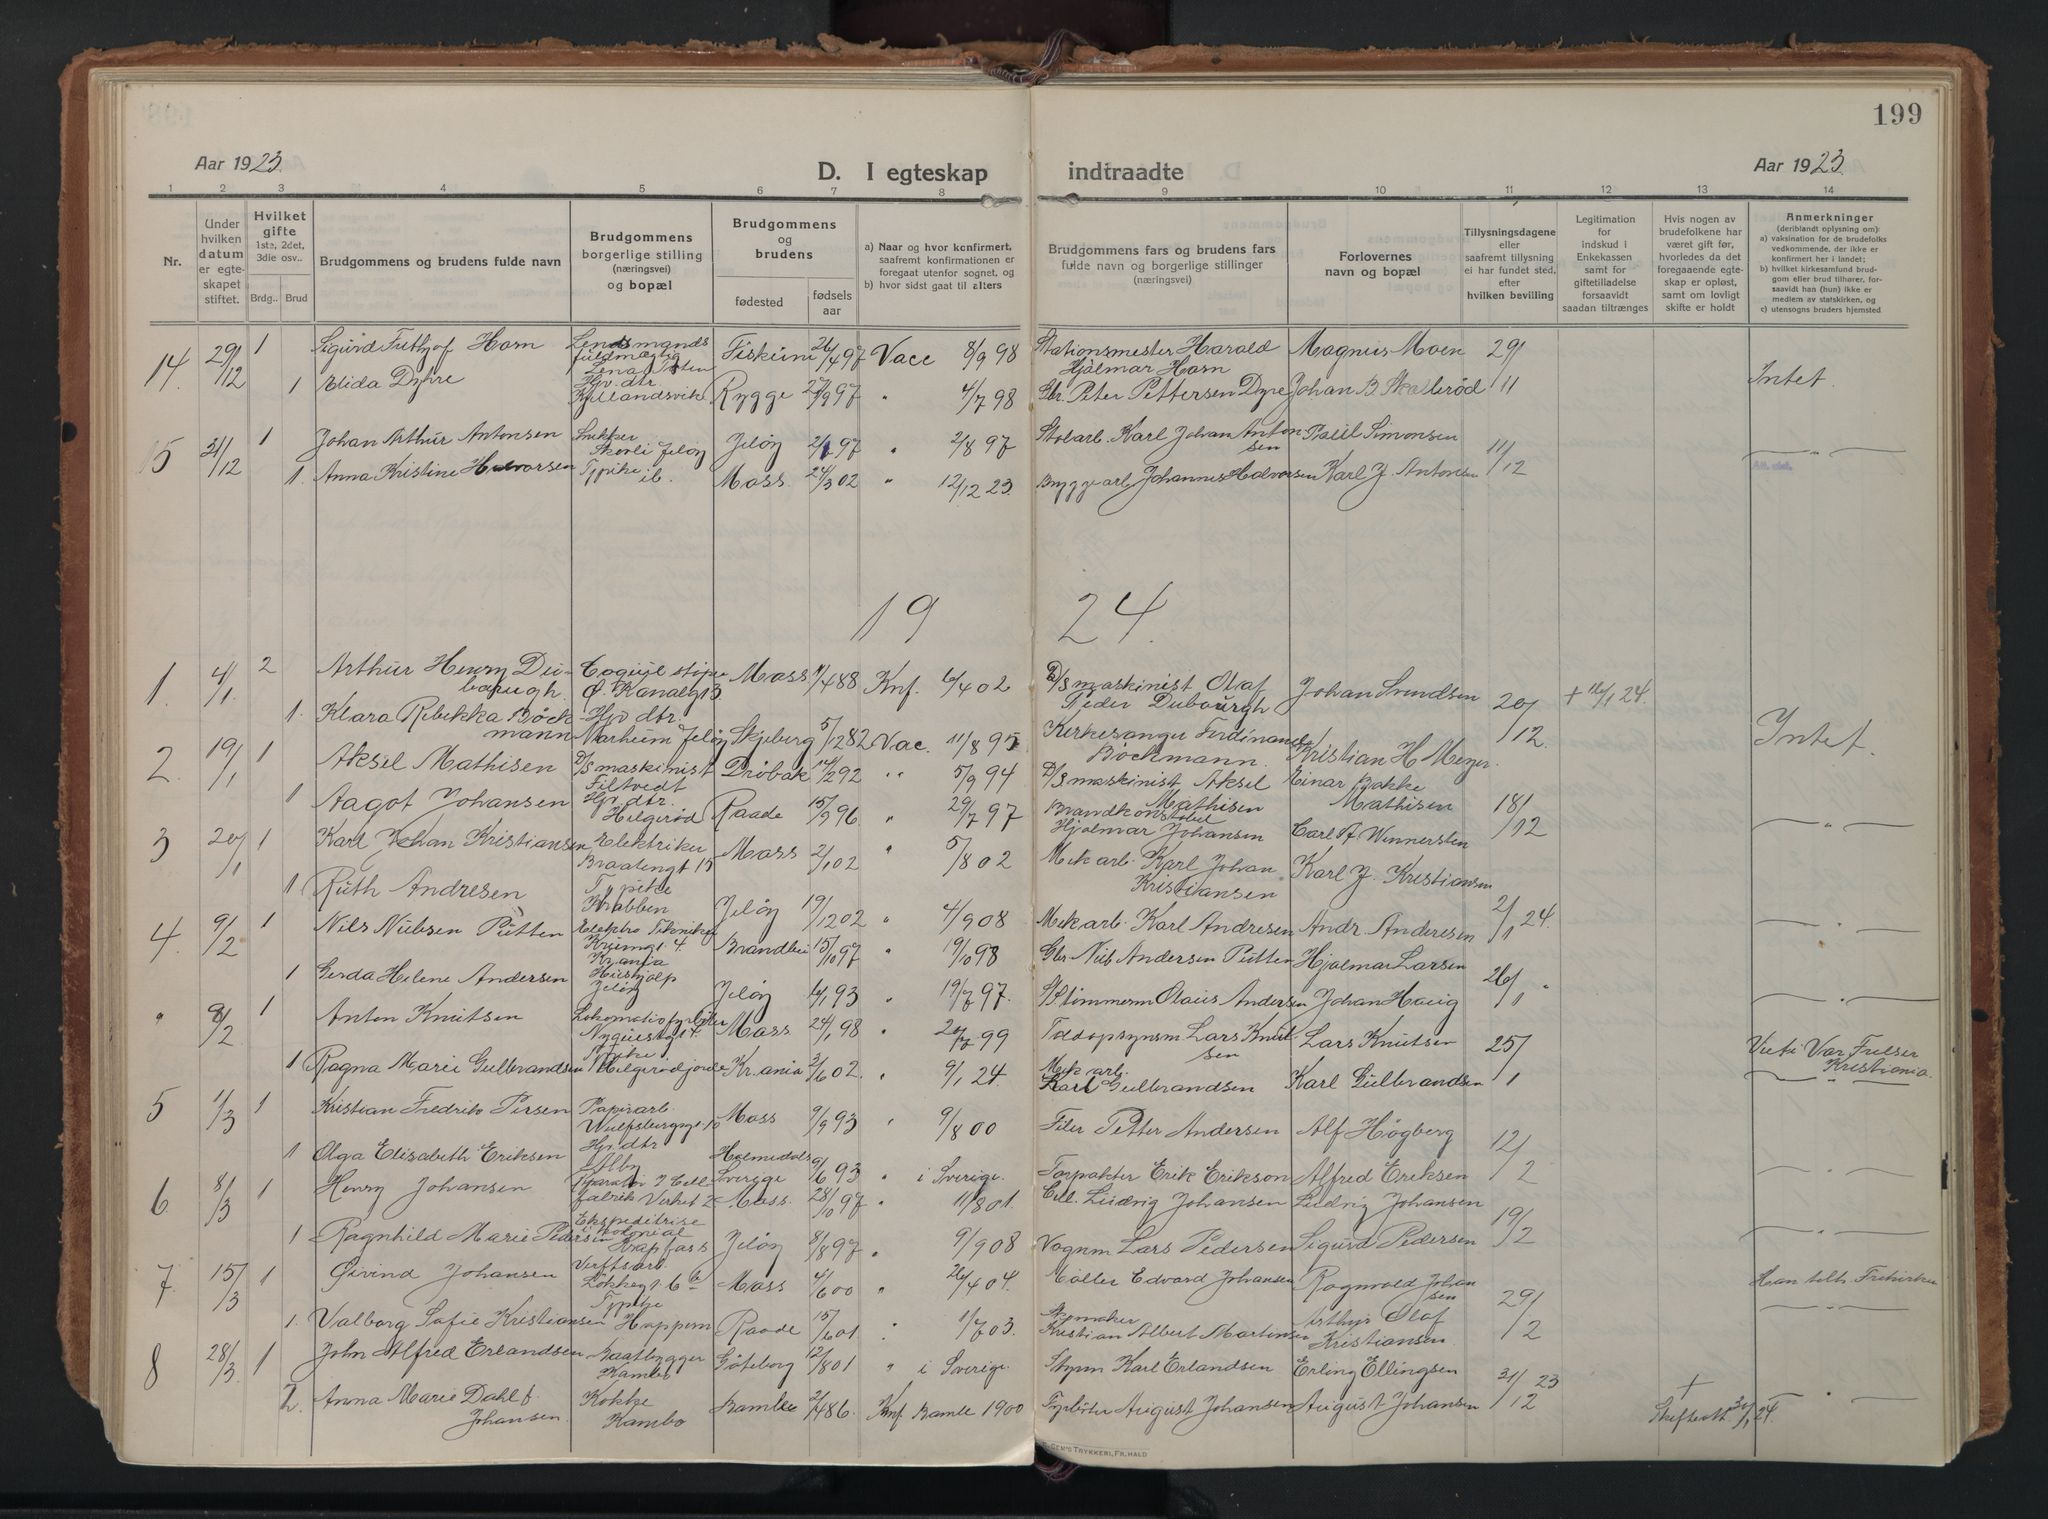 199
Aar 1923.
D. I egteskap indtraadte
Aar 1923.
1 2 3 4 5 6 7 8 9 10 11 12 13 14
Nr.
Under hvilken datum er egteskapet stiftet.
Hvilket gifte 1ste, 2det, 3die osv..
Brdg.. Brud
Brudgommens og brudens fulde navn
Brudgommens borgerlige stilling (næringsvei) og bopæl
Brudgommens og brudens
fødested
fødsels aar
a) Naar og hvor konfirmert, saafremt konfirmationen er foregaat utenfor sognet, og
b) hvor sidst gaat til alters
Brudgommens fars og brudens fars fulde navn og borgerlige stillinger (næringsvei)
Forlovernes navn og bopæl
Tillysningsdagene eller saafremt tillysning ei har fundet sted, efter hvilken bevilling
Legitimation for indskud i Enkekassen samt for giftetilladelse forsaavidt saadan tiltrænges
Hvis nogen av brudefolkene har været gift før, hvorledes da det foregaaende egteskap er opløst, samt om lovligt skifte er holdt
Anmerkninger (deriblandt oplysning om):
a) vaksination for de brudefolks vedkommende, der ikke er konfirmert her i landet;
b) hvilket kirkesamfund brudgom eller brud tilhører, forsaavidt han (hun) ikke er medlem av statskirken, og
c) utensogns bruders hjemsted
14. 29/12 1 Sigurd Frithjof Horn Lensmandsfuldmægtig Fiskum 26/4 97 Vacc 8/9 98 Stationsmester Harald Hjalmar Horn Magnus Moen 29/11
1 Elida Dyhre Hjv. dtr. Kyllandsvik Rygge 27/9 97 " 4/7 98 Gbr. Peter Pettersen Dyre Johan B Skallerød Intet.
15 31/12 1 Johan Arthur Antonsen Snekker Skovli Jeløy Jeløy 2/1 97 " 2/8 97 Stolarb. Karl Johan Antonsen Paul Simonsen 11/12
1. Anna Kristine Halvorsen Typike ib. Moss 24/3 02 " 12/12 23. Bryggearb Johannes Halvorsen Karl J. Antonsen
19 24.
1. 4/1 2 Arthur Henry Dubourgh Ø. Kanalgt 3 Moss 11/4 88 Knf. 6/4 02 D/S maskinist Olaf Peder Dubourgh Johan Svendsen 20/12 + 16/1 24.
1. Klara Rebekka Böckmann Hjv dtr. Varheim Jeløy Skjeberg 5/12 82 Vac. 11/8 95 Kirkesanger Ferdinand Böckmann. Kristian H Meyer. Intet.
2. 19/1 1 Aksel Mathisen D/S maskinist Filtvedt Drøbak 14/2 92 " 5/9 94 D/S maskinist Aksel Mathisen Einar Bakke Mathisen 18/12
1 Aagot Johansen Hjv dtr. Helgerød Raade 15/9 96 " 29/7 97 Brandkonstabel Hjalmar Johansen Carl A. Winnersten
3 20/1 1 Karl Johan Kristiansen Elektriker Braatengt 15 Moss 2/1 02 " 5/8 02 Mek arb. Karl Johan Kristiansen Karl J. Kristiansen
1 Ruth Andresen Typike Krabben Jeløy 19/12 02 " 4/9 08 Mek arb. Karl Andresen Andr. Andresen 2/1 24.
4. 9/2 1 Nils Nielsen Putten Elektro Tekniker Krania 15/10 97 " 19/10 98 Gbr Nils Andersen Putten Hjalmar Larsen
1 Gerda Helene Andersen Hushjælp Jeløy Jeløy 6/1 93 " 19/7 97. Olaus Andersen Johan Haug 26/1 "
" 9/2 1 Anton Knutsen Lokomotivfyrbøter Moss 24/1 98 " 20/7 99 Toldopsynsm Lars Knutsen Lars Knutsen 25/1
1 Ragna Marie Gulbrandsen Typike Helgerødjorde Kr.ania 3/6 02. " 9/1 24. Mek arb. Karl Gulbrandsen Karl Gulbrandsen Viet i Vor Frelser Kristiania.
5 1/3 1 Kristian Fredrik Persen Papirarb. Moss 9/9 93 " 9/8 00 Filer Petter Andersen Alf Högberg 12/2
1 Olga Elisabeth Eriksen Hjv dtr Alby Holmedals Sverige 9/6 93 " i Sverige. Torpakter Erik Erikson Alfred Eriksen
6. 8/3 1 Henry Johansen Moss. 28/10 97 " 11/8 01. Cell. Ludvig Johansen Ludvig Johansen 19/2
1 Ragnhild Marie Pedersen Ekspeditrise Jeløy 8/8 97 " 9/9 08 Vognm Lars Pedersen Sigurd Pedersen
7 15/3 1 Øivind Johansen Verftsarb. Moss 4/6 00 " 26/4 04. Møller Edvard Johansen Ragnvald Johansen 29/2 Han tilh. Frikirken
1. Valborg Sofie Kristiansen Typike Huppern Raade 15/6 01. " 11/7 03. Skomaker Kristian Albert Martinsen Arthur Olaf Kristiansen
8 28/3 1 John Alfred Erlandsen Baatbygger Kambo Göteborg 12/8 01 " i Sverige. Styrm Karl Erlandsen Erling Ellingsen 31/12 23
2. Anna Marie Dahl f. Johansen. Kokke Kambo Bamble 2/4 86. Knf. Bamle 1900 Fyrbøter August Johansen August Johansen + Skifteatt 30/1 24.
SEN'S TRYKKERI, FR.HALD